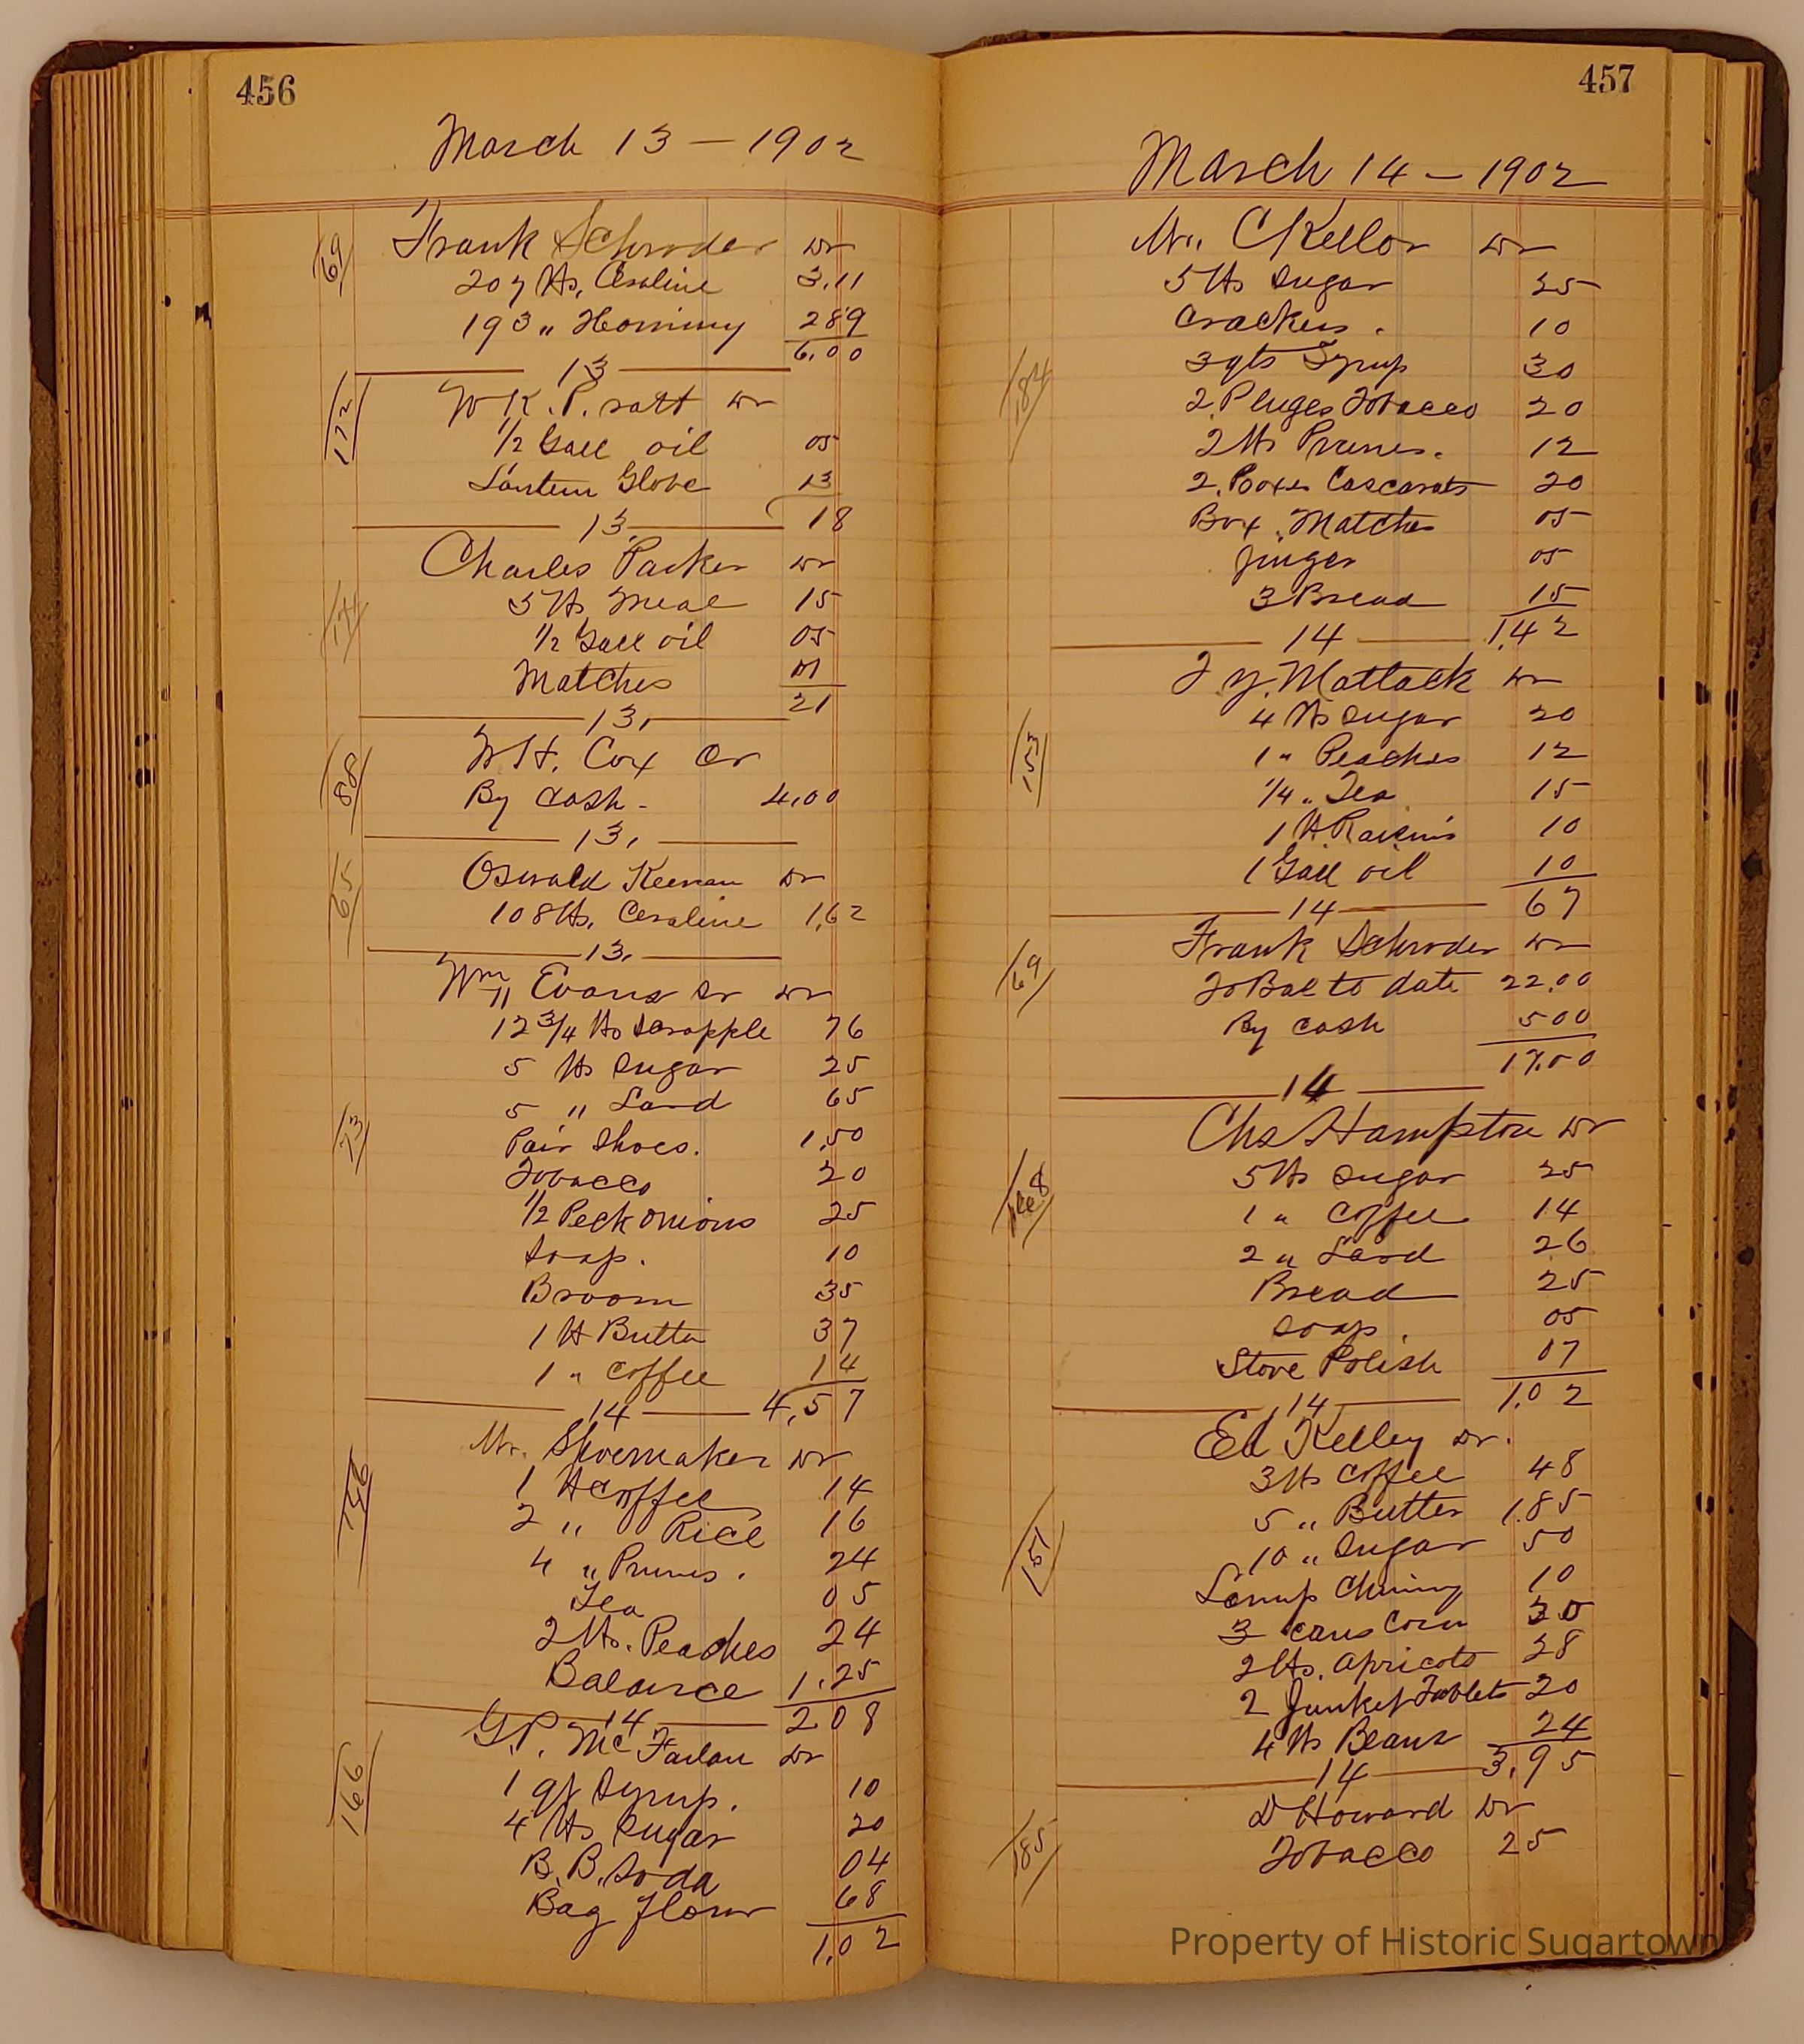 456
March 13 — 1902
69
Frank Schroder Dr
207 lbs, Ceraline 3.11
193 " Hominy 289
6.00
13
172
W K. P. ratt Dr
1/2 Gall oil 05
Lantern Globe 13
13. 18
Charles Parker Dr
174
5 lbs Meal 15
1/2 Gall oil 05
Matches 01
21
13,
W H. Cox Cr
88
By Cash - 4,00
13,
Oswald Keenan Dr
65
108 lbs, Ceraline 1,62
13,
Wm " Evans Sr Dr
12 3/4 lbs Scrapple 76
5 lbs Sugar 25
5 " Lard 65
73
Pair Shoes. 1.50
Tobacco 20
1/2 Peck onions 25
Soap. 10
Broom 35
1 lb Butter 37
1 " Coffee 14
14 4,57
Mr. Shoemaker Dr
146
1 lb Coffee 14
2 " Rice 16
4 " Prunes. 24
Tea 05
2 lbs. Peaches 24
Balance 1.25
14 208
G.P. Mc Farlan Dr
166
1 qt Syrup. 10
4 lbs Sugar 20
B. B. Soda 04
Bag Flour 68
1.02
457
March 14 — 1902
Mr. C Kellor Dr
5 lbs Sugar 25
Crackers. 10
184
3 qts Syrup 30
2 Pluges Tobacco 20
2 lbs Prunes. 12
2. Boxes Cascarets 20
Box. Matches 05
Jinger 05
3 Bread 15
14 1.42
J. Y. Matlack Dr
4 lbs Sugar 20
153
1 " Peaches 12
1/4 " Tea 15
1 lb Raisins 10
1 Gall oil 10
14 67
Frank Schroder Dr
69
To Bal to date 22.00
By Cash 500
17.00
14
Chs Hampton Dr
5 lbs Sugar 25
1 " Coffee 14
2 " Lard 26
Bread 25
Soap. 05
Stove Polish 07
14 1.02
Ed Kelley Dr.
3 lbs Coffee 48
5 " Butter 1.85
151
10 " Sugar 50
Lamp Chimny 10
3 cans Corn 30
2 lbs. Apricots 28
2 Junket Tablets 20
4 lbs Beans 24
14 3,95
D Howard Dr
185
Tobacco 25
Property of Historic Sugartown